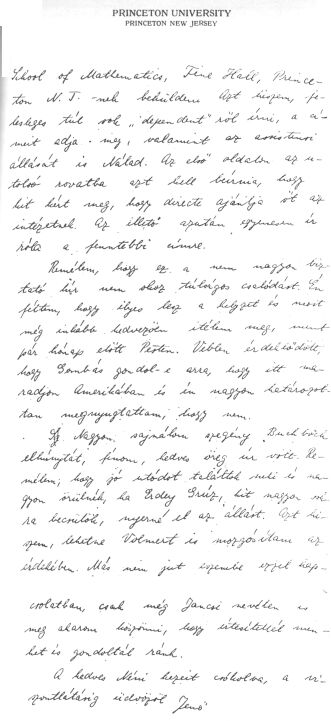 PRINCETON UNIVERSITY
PRINCETON NEW JERSEY
School of Mathematics, Fine Hall, Prince-
ton N.J. -nek beküldeni. Azt hiszem, fe-
lesleges túl sok „dependent"ről írni, a cí-
mert adja meg, valamint az assistensi
állását is Nálad. Az első oldalon az u-
tolsó rovatba azt kell beírnia, hogy
kit kért meg, hogy directe ajánlja őt az
intézetnek. Az illető azután egyenesen ír
róla a fenntebbi címre.
Remélem, hogy ez a nem nagyon biz-
tató hír nem okoz túlságos csalódást. Én
féltem, hogy ilyes lesz a helyzet és most
még inkább kedvezően ítélem meg, mint
pár hónap előtt Pesten. Veblen érdeklődött,
hogy Gombás gondol-e arra, hogy itt ma-
radjon Amerikában és én nagyon határozot-
tan megnyugtattam, hogy nem.
Nagyon sajnálom szegény Buchböck
elhúnytát, finom, kedves öreg úr volt. Re-
mélem, hogy jó utódot találtok neki és na-
gyon örülnék, ha Erdey Grúz, kit nagyon
ra becsülök, nyerné el az állást. Azt hi-
szem, lehetne Volmert is mozgósítani az
érdekében. Más nem jut eszembe ezzel kap-
csolatban, csak még Jancsi nevében is
meg akarom köszönni, hogy értesítettél men-
ket is gondoltál ránk.
A kedves Néni kezeit csókolva, a vi-
szontlátásig üdvözöl Jenő